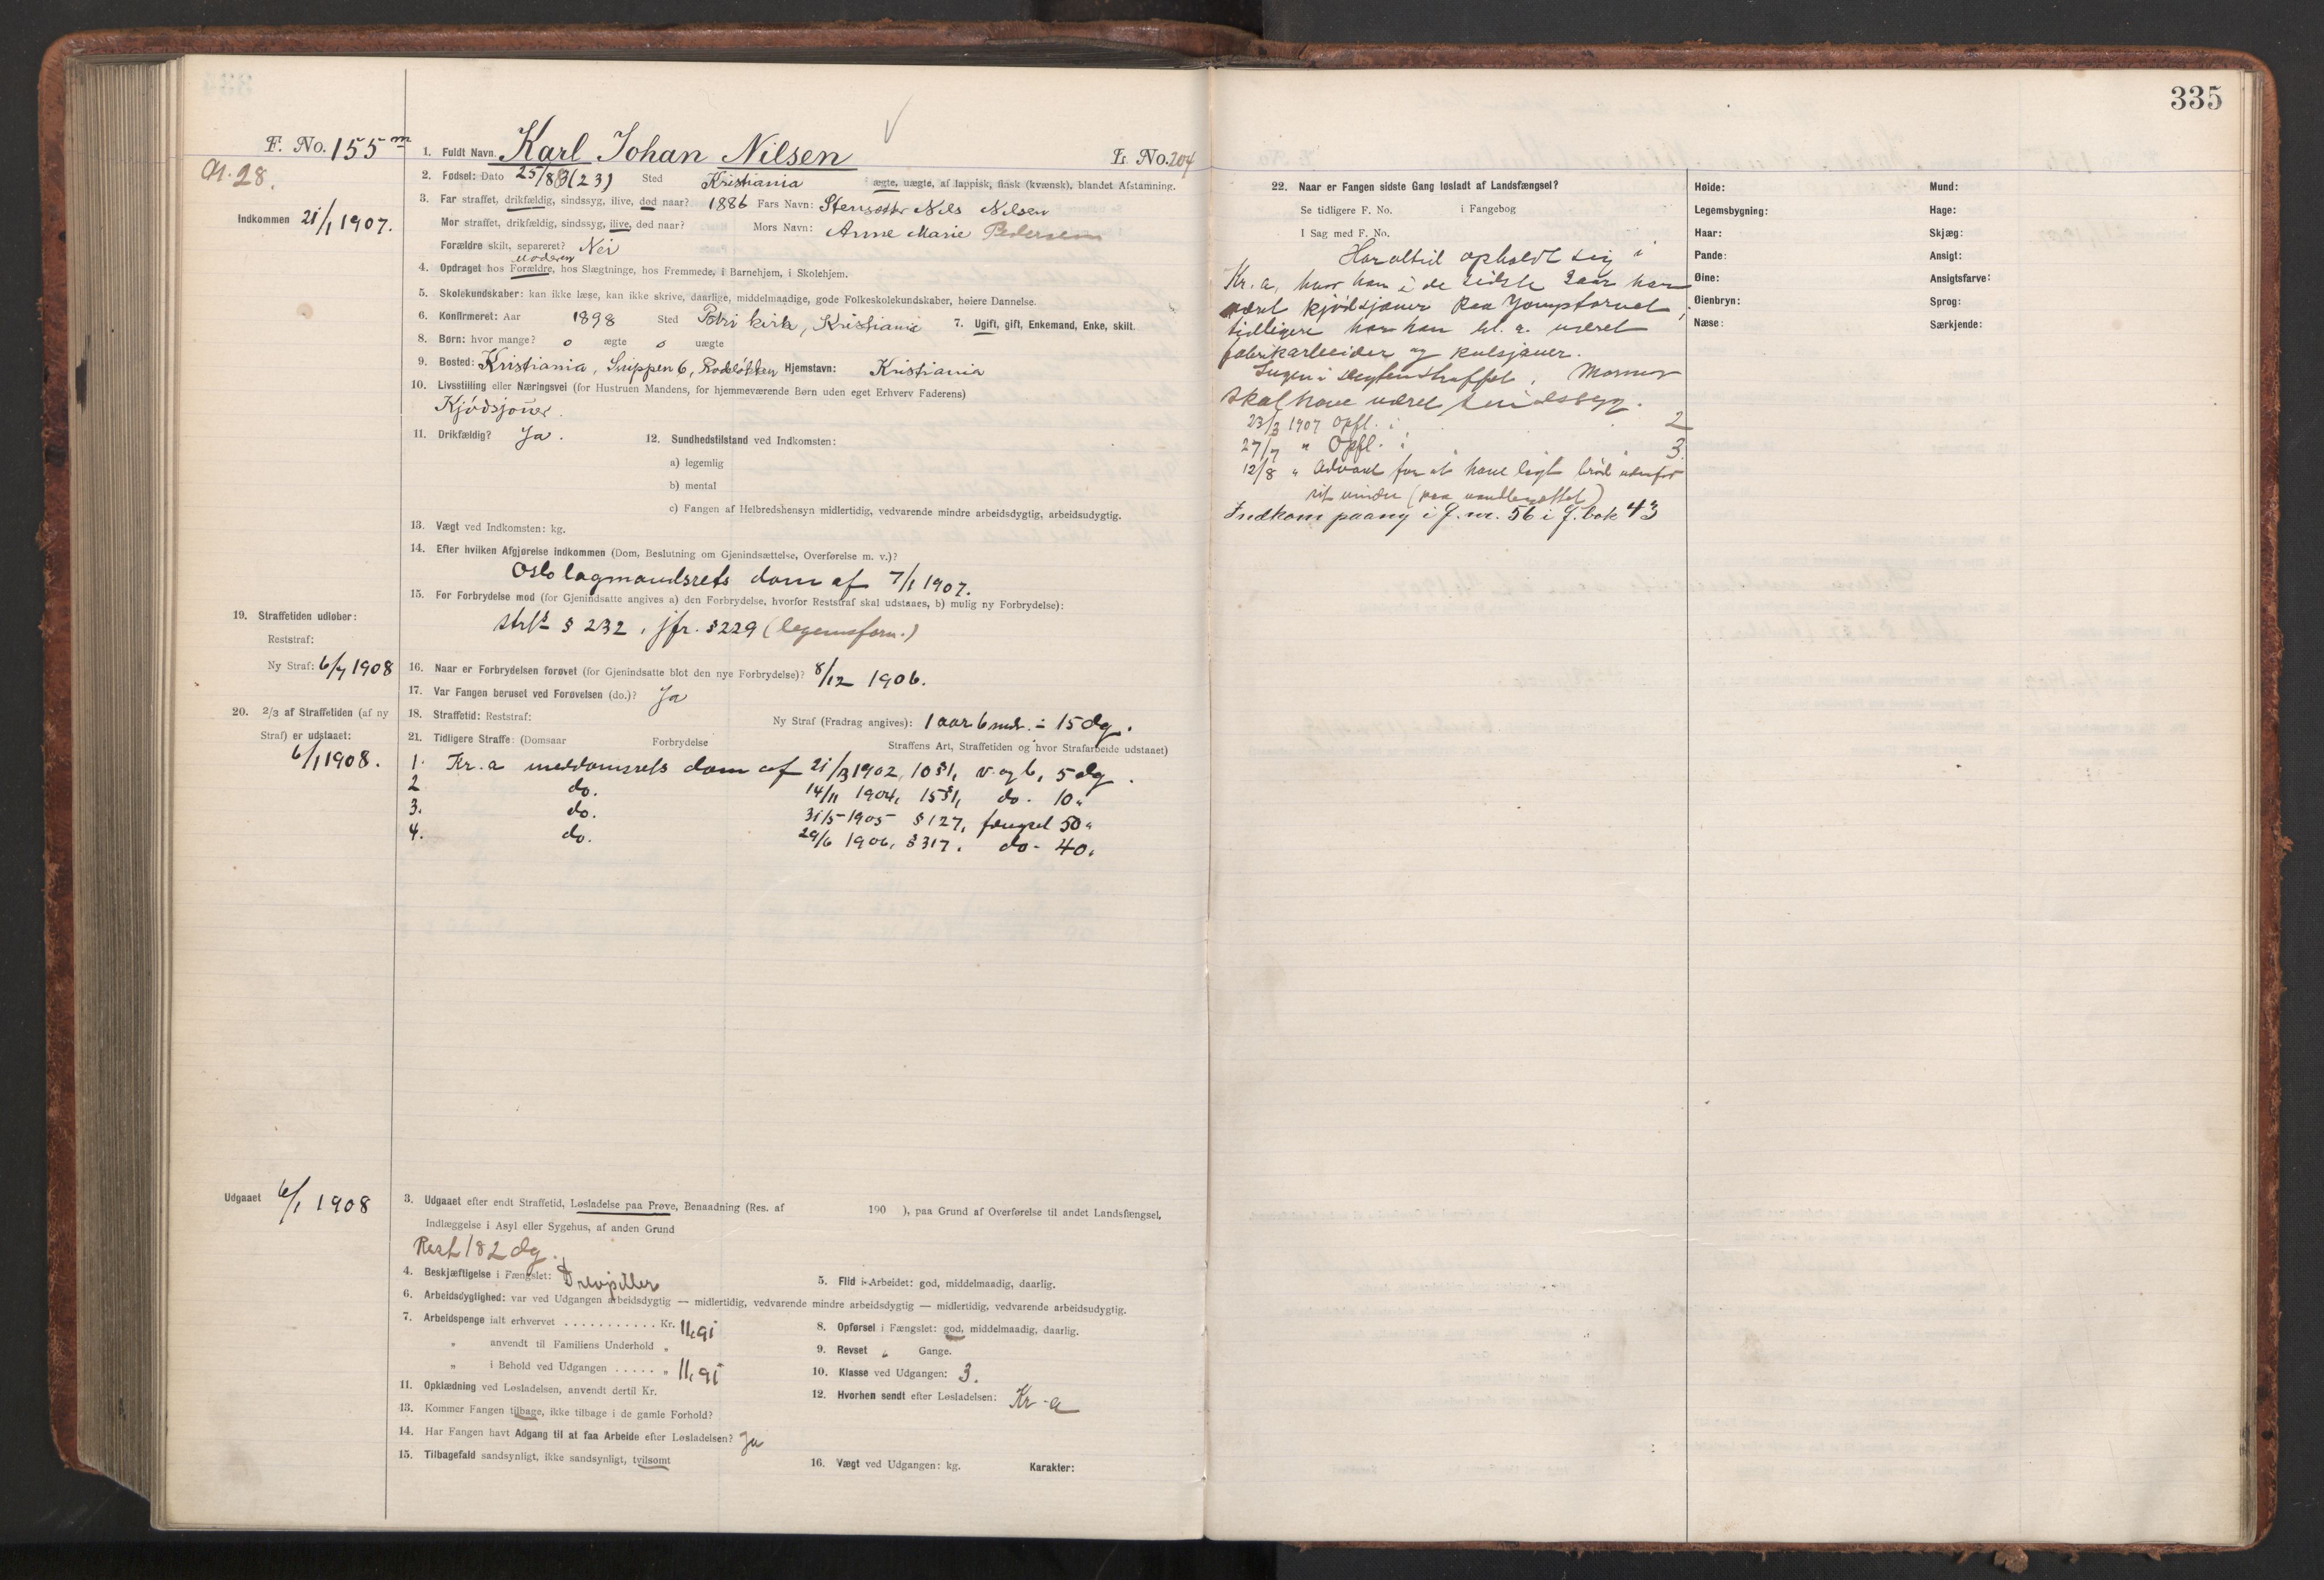 335
F. No. 155 m
1. Fuldt Navn Karl Johan Nilsen
L No. 204
28.
2. Fødsel: Dato 25/8 83 (23) Sted Kristiania ægte, uægte, af lappisk, finsk (kvænsk), blandet Afstamning.
Indkommen 21/1 1907.
3. Far straffet, drikfældig, sindssyg, ilive, død naar? 1886 Fars Navn: Nils Nilsen
Mor straffet, drikfældig, sindssyg, ilive, død naar? Mors Navn: Anne Marie Pedersen
Forældre skilt, separeret? Nei
Moderen
4. Opdraget hos Forældre, hos Slægtninge, hos Fremmede, i Barnehjem, i Skolehjem.
5. Skolekundskaber: kan ikke læse, kan ikke skrive, daarlige, middelmaadige, gode Folkeskolekundskaber, høiere Dannelse.
6. Konfirmeret: Aar 1898 Sted Petri kirke, Kristiania 7. Ugift, gift, Enkemand, Enke, skilt.
8. Børn: hvor mange? 0 ægte 0 uægte
9. Bosted: Kristiania, Snippen 6, Rodeløkken Hjemstavn: Kristiania
10. Livsstilling eller Næringsvei (for Hustruen Mandens, for hjemmeværende Børn uden eget Erhverv Faderens)
Kjødsjouer.
11. Drikfældig? Ja. 12. Sundhedstilstand ved Indkomsten:
a) legemlig
b) mental
c) Fangen af Helbredshensyn midlertidig, vedvarende mindre arbeidsdygtig, arbeidsudygtig.
13. Vægt ved Indkomsten: kg.
14. Efter hvilken Afgjørelse indkommen (Dom, Beslutning om Gjenindsættelse, Overførelse m. v.)?
Oslo lagmandsrets dom af 7/1 1907.
15. For Forbrydelse mod (for Gjenindsatte angives a) den Forbrydelse, hvorfor Reststraf skal udstaaes, b) mulig ny Forbrydelse):
strl § 232, jfr. § 229 (legemsforn.)
19. Straffetiden udløber:
Reststraf:
Ny Straf: 6/7 1908
16. Naar er Forbrydelsen forøvet (for Gjenindsatte blot den nye Forbrydelse)? 8/12 1906.
17. Var Fangen beruset ved Forøvelsen (do.)? Ja
20. 2/3 af Straffetiden (af ny
Straf) er udstaaet:
6/1 1908.
18. Straffetid: Reststraf: Ny Straf (Fradrag angives): 1 aar 6 mdr. ÷ 15 dg.
21. Tidligere Straffe: (Domsaar Forbrydelse Straffens Art, Straffetiden og hvor Strafarbeide udstaaet)
1. Kr.a meddomsrets dom af 21/3 1902, 10 § 1, v. og b, 5 dg.
2 do. 14/11 1904, 15 § 1, do. 10 "
3. do. 31/5 1905 § 127, fængsel 50 "
4. do. 29/6 1906, § 317. do. 40.
Udgaaet 6/1 1908
3. Udgaaet efter endt Straffetid, Løsladelse paa Prøve, Benaadning (Res. af 190 ), paa Grund af Overførelse til andet Landsfængsel,
Indlæggelse i Asyl eller Sygehus, af anden Grund
Rest 182 dg.
4. Beskjæftigelse i Fængslet: Drevpiller 5. Flid i Arbeidet: god, middelmaadig, daarlig.
6. Arbeidsdyglighed: var ved Udgangen arbeidsdygtig — midlertidig, vedvarende mindre arbeidsdygtig — midlertidig, vedvarende arbeidsudygtig.
7. Arbeidspenge ialt erhvervet ........... Kr. 11,91 8. Opførsel i Fængslet: god, middelmaadig, daarlig.
" anvendt til Familiens Underhold " 9. Revset " Gange.
" i Behold ved Udgangen ..... " 11,91 10. Klasse ved Udgangen: 3.
11. Opklædning ved Løsladelsen, anvendt dertil Kr. 12. Hvorhen sendt efter Løsladelsen: Kr-a
13. Kommer Fangen tilbage, ikke tilbage i de gamle Forhold?
14. Har Fangen havt Adgang til at faa Arbeide efter Løsladelsen? Ja
15. Tilbagefald sandsynligt, ikke sandsynligt, tvilsomt 16. Vægt ved Udgangen: kg. Karakter:
22. Naar er Fangen sidste Gang løsladt af Landsfængsel?
Se tidligere F. No. i Fangebog
I Sag med F. No.
Har altid opholdt sig i
Kr.a, hvor han i de sidste 2 aar har
været kjødsjouer paa Youngstorvet;
tidligere har han bl. a. været
fabrikarbeider og kulsjauer.
Ingen i slegten straffet. Mormor
skal have været sindssyg.
23/3 1907 Opfl. i 2
27/7 " Opfl. i 3.
12/8 " Advaret for at have lagt brød udenfor
sit vindu (paa )
Indkom paany i f. nr. 56 i f. bok 43
Høide: Mund:
Legemsbygning: Hage:
Haar: Skjæg:
Pande: Ansigt:
Øine: Ansigtsfarve:
Øienbryn: Sprog:
Næse: Særkjende: